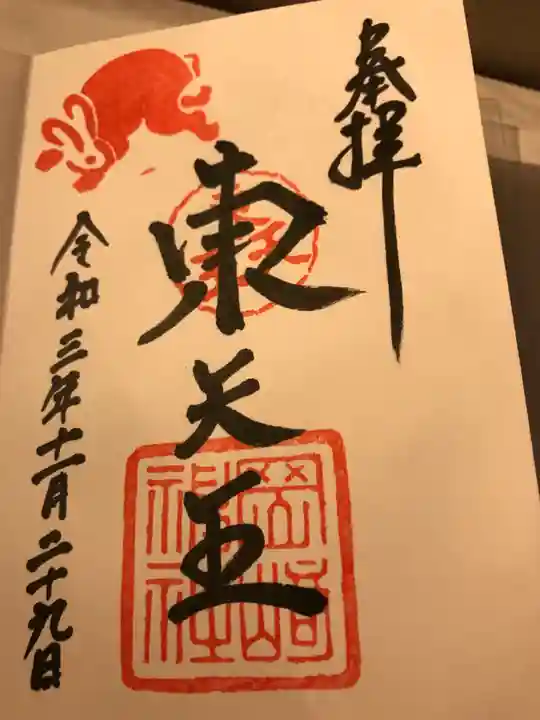 奉拝
東天王
岡崎神社
令和三年十一月二十九日